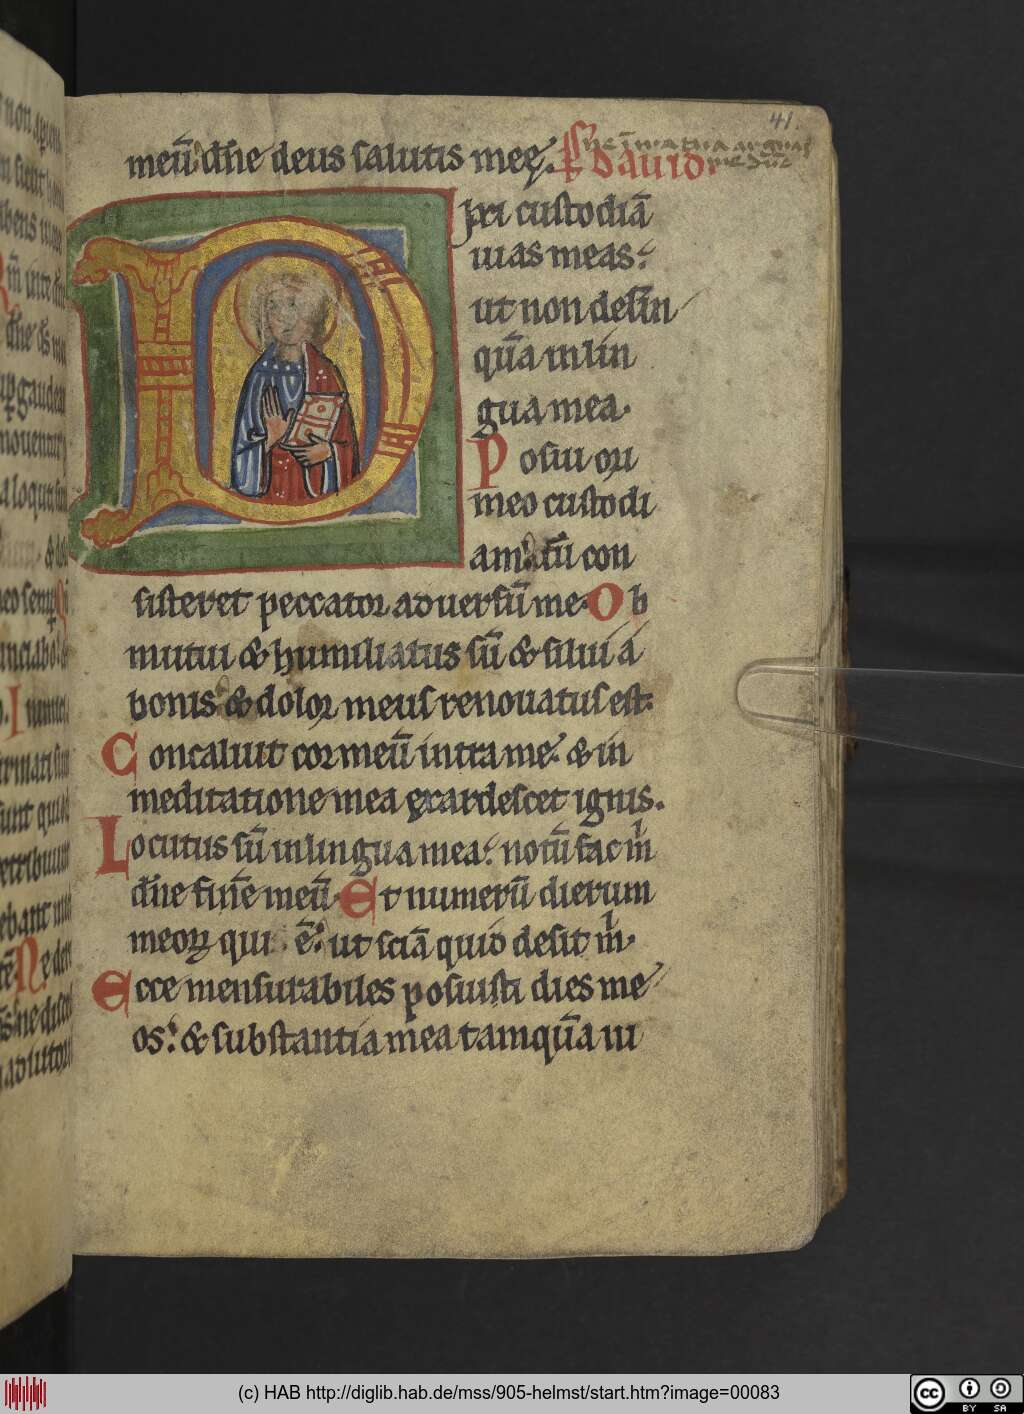 meū dn̄e deus salutis meę. Ps̄ dauid.
41.
D ixi custodiā
uias meas:
ut non delin
quā in lin
gua mea.
Posui ori
meo custodi
am: cū con
sisteret peccator aduersū me. Ob
mutui & humiliatus sū & silui a
bonis & dolor meus renouatus est.
Concaluit cor meū intra me: & in
meditatione mea exardescet ignis.
Locutus sū in lingua mea: notū fac m̄
dn̄e finē meū. Et numerū dierum
meoꝝ qui ē: ut sciā quid desit m̄.
Ecce mensurabiles posuisti dies me
os: & substantia mea tamquā ni
(c) HAB http://diglib.hab.de/mss/905-helmst/start.htm?image=00083
cc BY SA